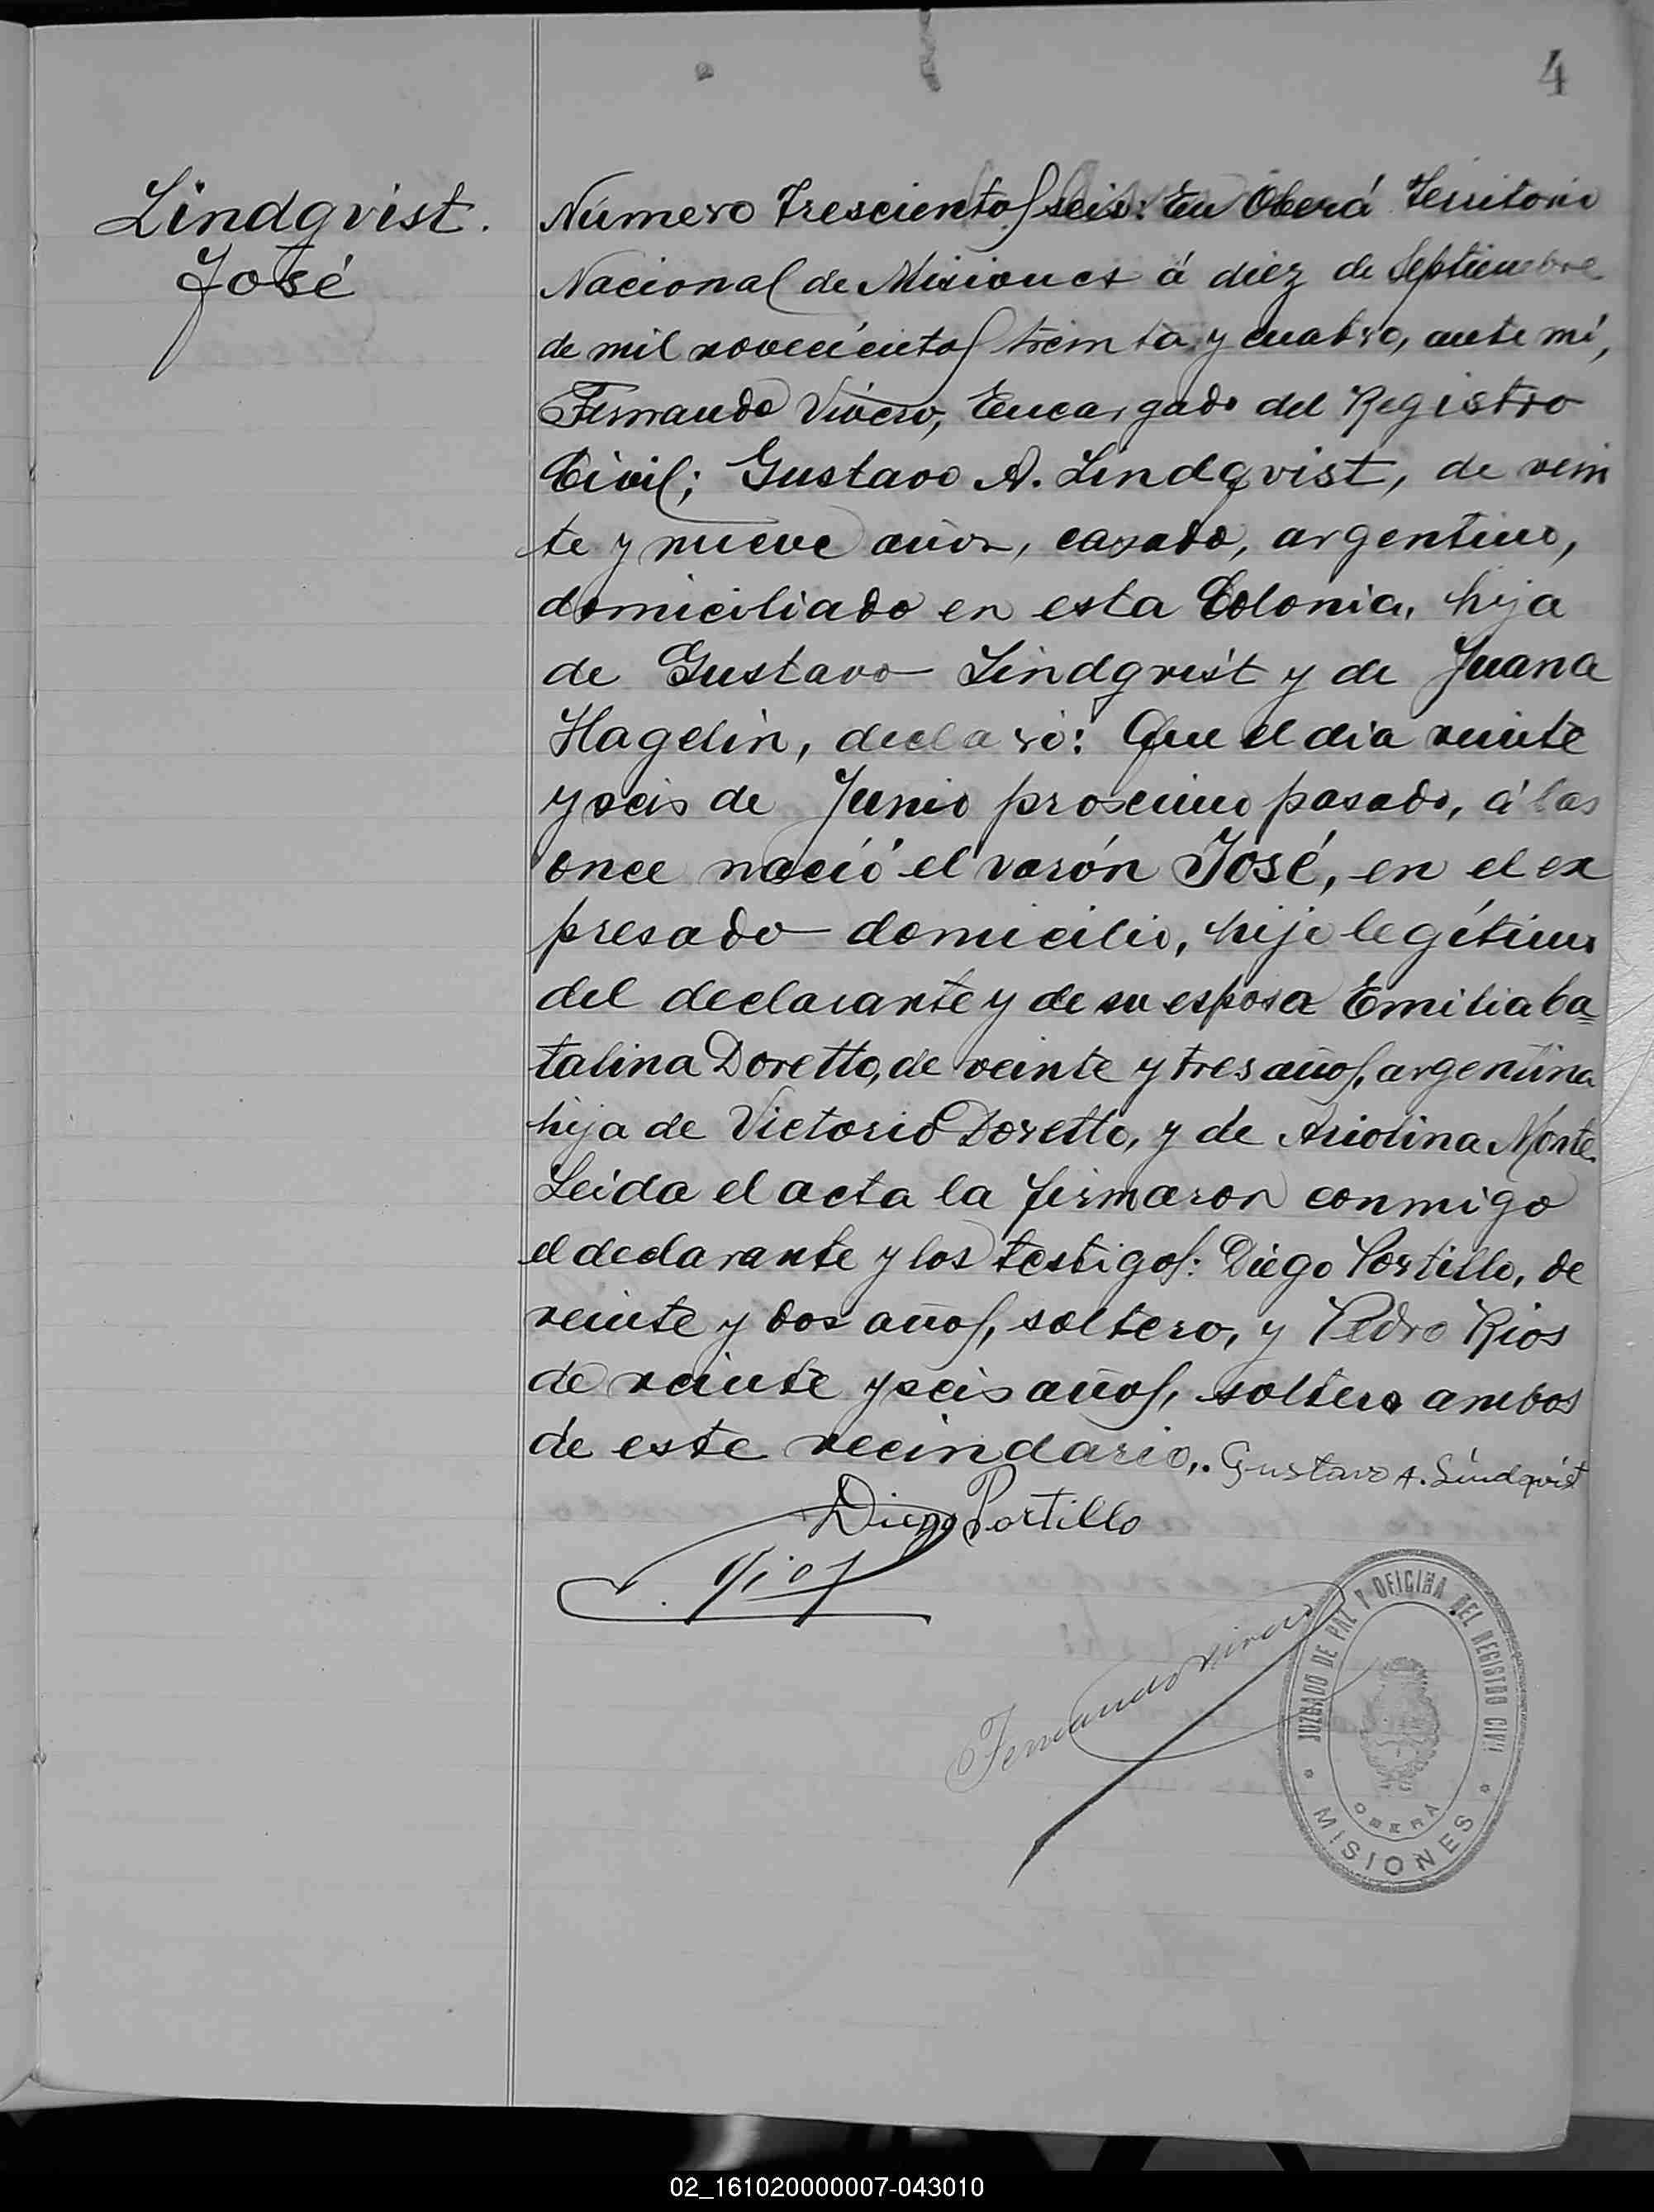 4
Lindqvist.
José
Número Trescientos seis: En Oberá Territorio
Nacional de Misiones á diez de Septiembre
de mil novecientos treinta y cuatro, ante mí,
Fernando Vivero, Encargado del Registro
Civil; Gustavo A. Lindqvist, de vein
te y nueve años, casado, argentino,
domiciliado en esta Colonia, hija
de Gustavo Lindqvist y de Juana
Hagelin, declaró: Que el dia veinte
y seis de Junio proximo pasado, á las
once nació el varón José, en el ex
presado domicilio, hijo legítimo
del declarante y de su esposa Emilia Ca=
talina Doretto, de veinte y tres años, argentina
hija de Victorio Doretto, y de Ariolina Monte.
Leida el acta la firmaron conmigo
el declarante y los testigos: Diego Portillo, de
veinte y dos años, soltero, y Pedro Rios
de veinte y seis años, soltero ambos
de este vecindario,. Gustavo A. Lindqvist
Diego Portillo
P. Rios
Fernando Vivero
JUZGADO DE PAZ Y OFICINA DEL REGISTRO CIVIL
OBERÁ
* MISIONES *
02_161020000007-043010